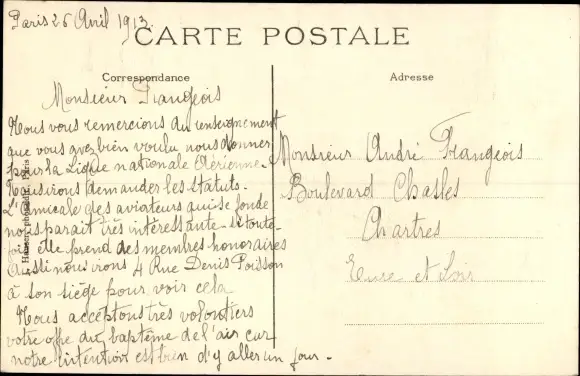 Paris 26 Avril 1913.
CARTE POSTALE
Correspondance
Monsieur Frangeois
Nous vous remercions du renseignement
que vous avez bien voulu nous donner
pour la Ligue nationale Aérienne.
Nous irons demander les statuts.
L'amicale des aviateurs qui se fonde
nous parait très intéressante si toute-
fois elle prend des membres honoraires
Aussi nous irons 4 Rue Denis Poisson
à son siège pour voir cela
Nous acceptons très volontiers
votre offre du baptême de l'air car
notre intention est bien d'y aller un jour.
Adresse
Monsieur André Frangeois
Boulevard Chasles
Chartres
Eure et Loir
Paris